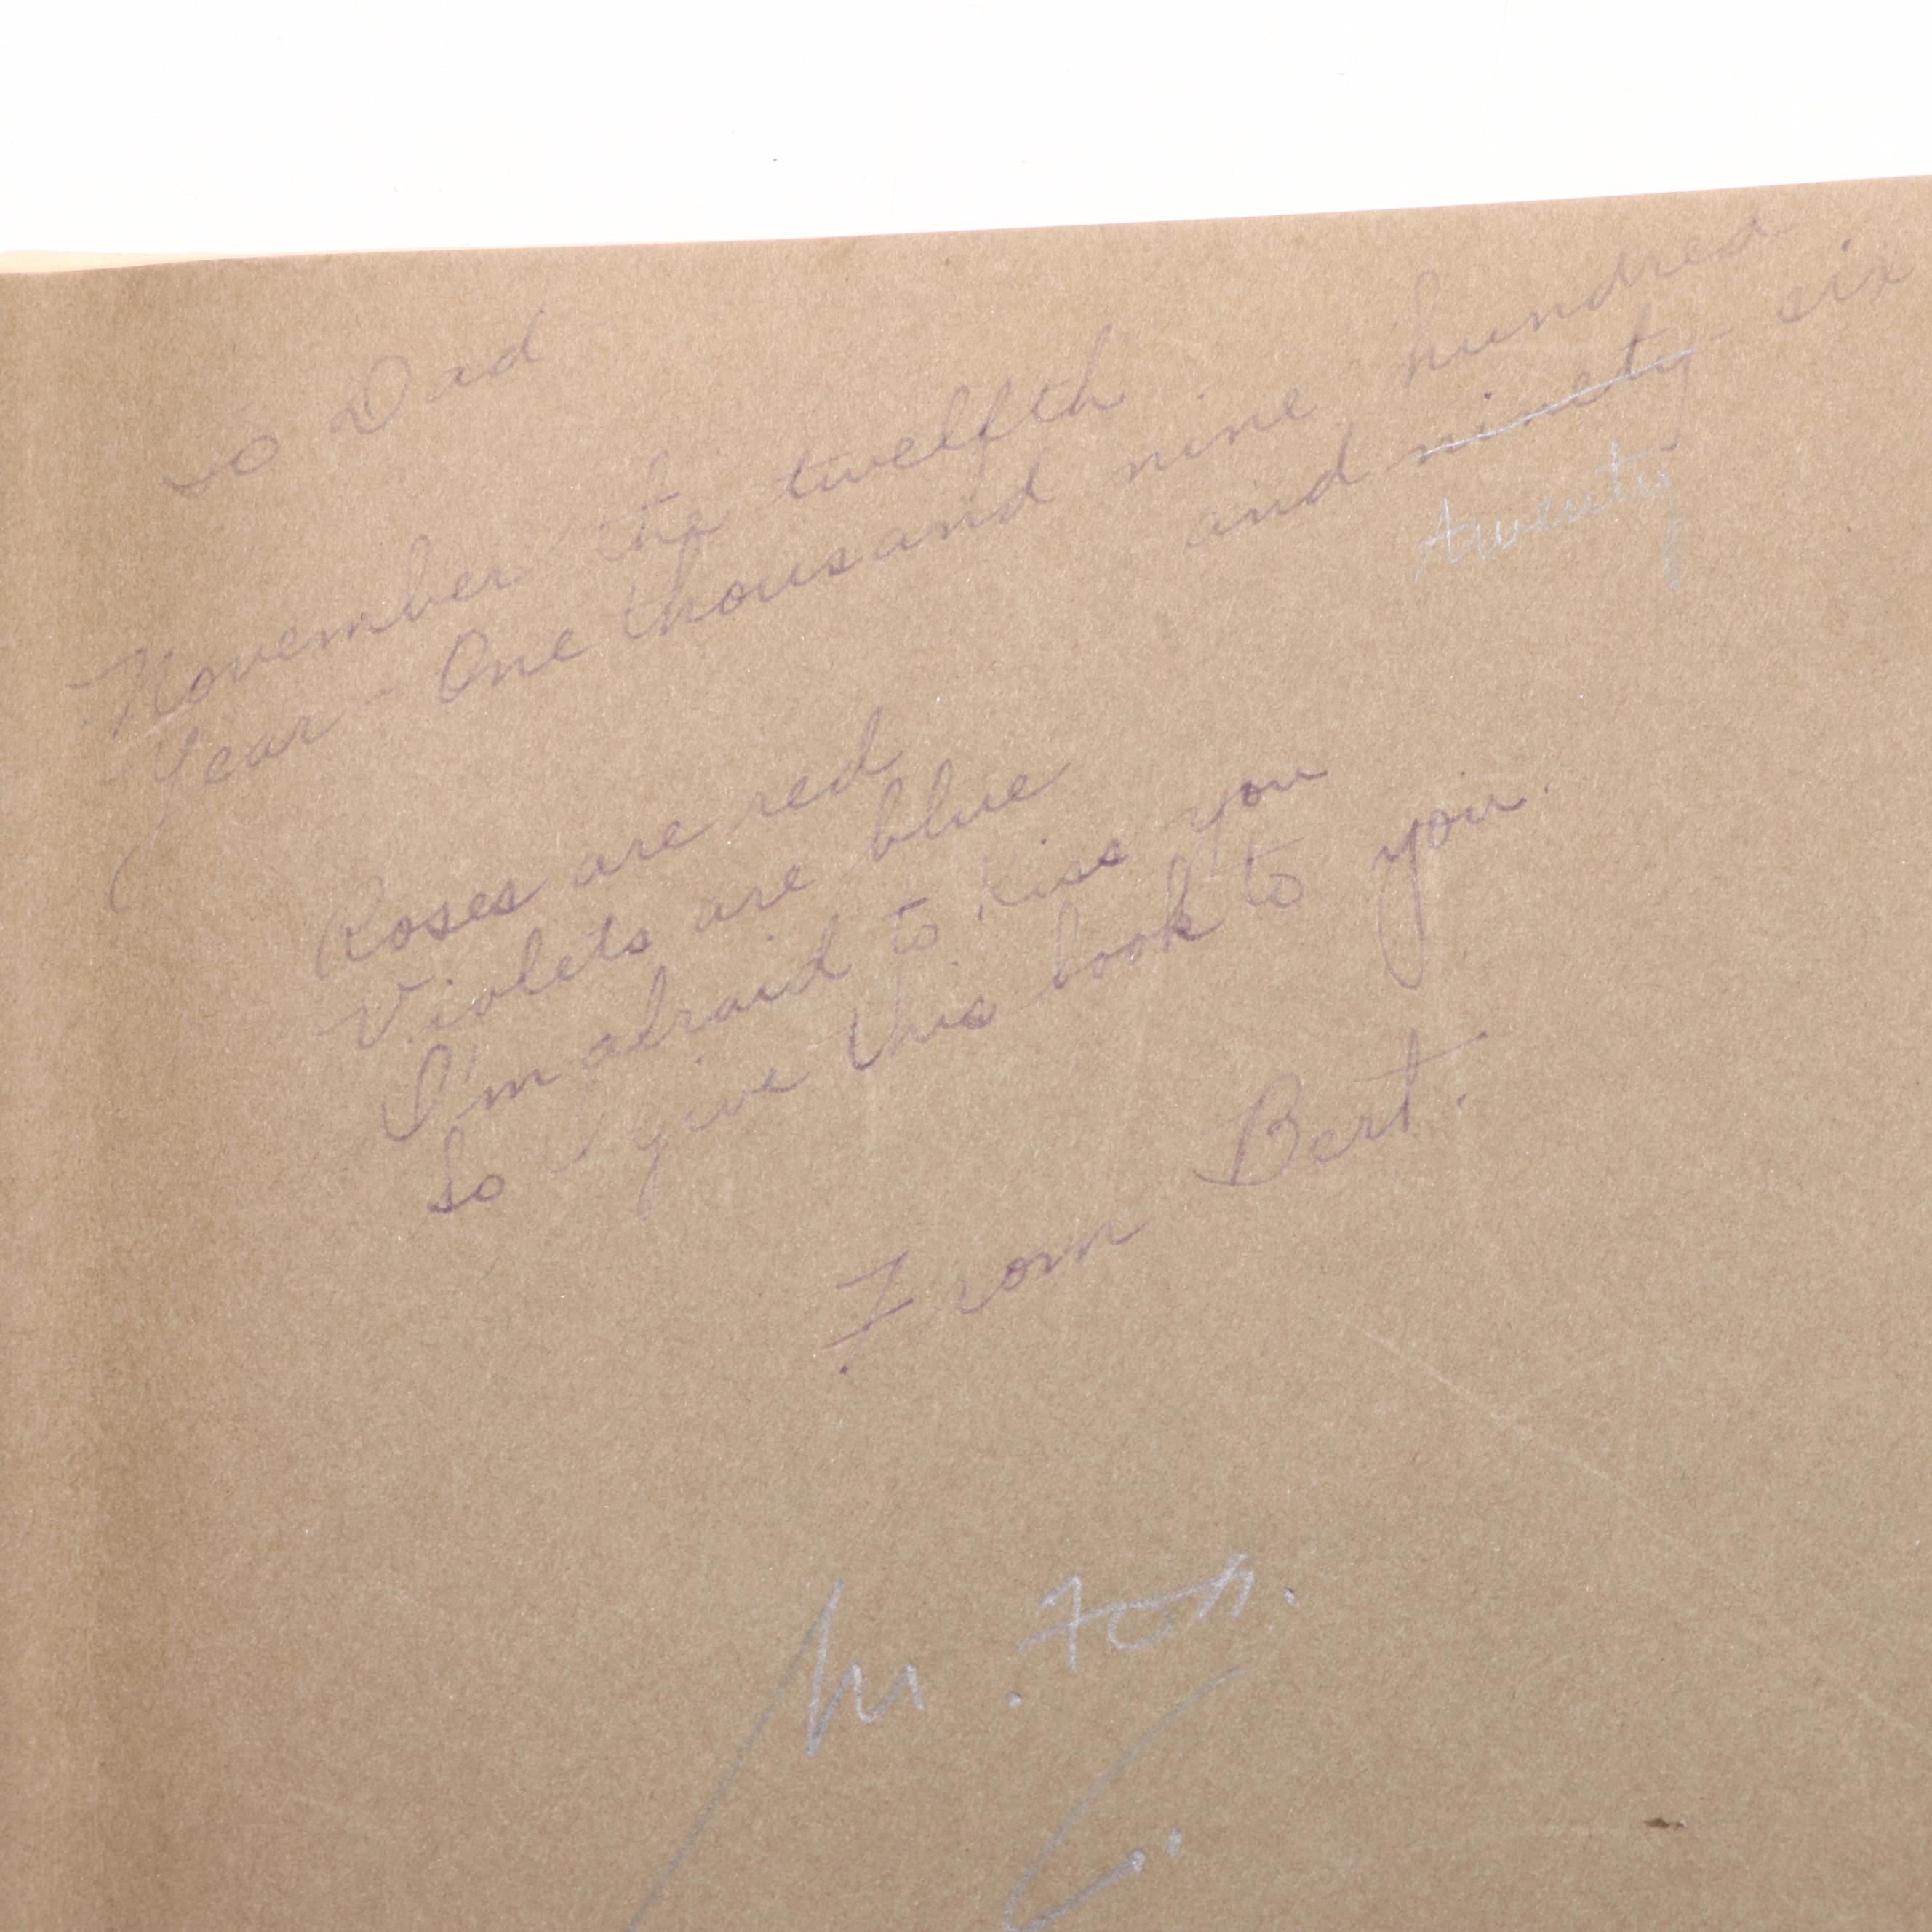 To Dad
November the twelfth
Year - One thousand nine hundred
and ninety - six
twenty
Roses are red
Violets are blue
I'm afraid to kiss you
So I give this book to you.
From Bert.